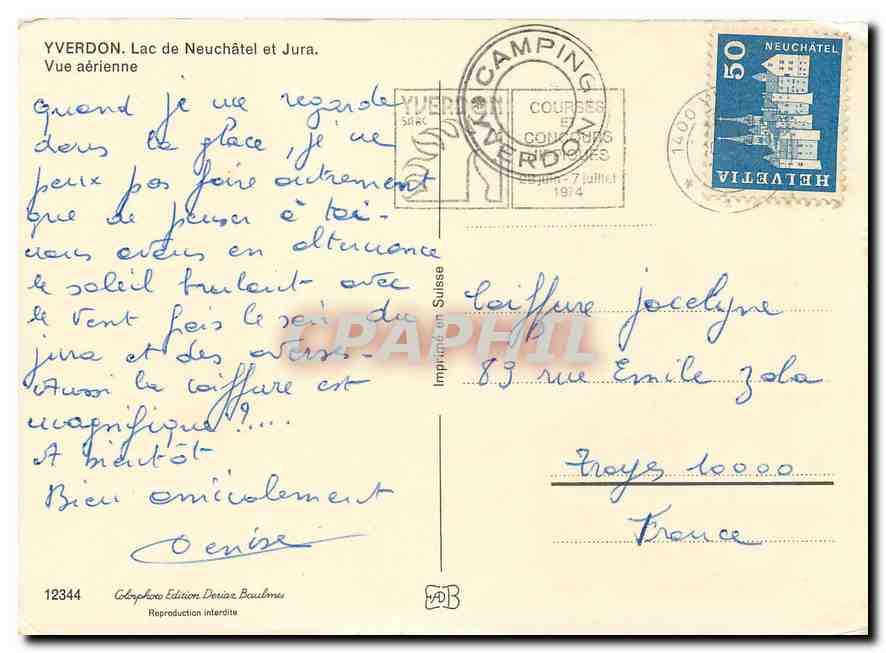 YVERDON. Lac de Neuchâtel et Jura.
Vue aérienne
quand je me regarde
dans la glace, je ne
peux pas faire autrement
que de penser à toi -
nous avons en alternance
le soleil brulant avec
le vent frais le soir du
jura et des averses -
Aussi la coiffure est
magnifique!?....
A bientôt
Bien amicalement
Denise
12344
Colorphoto Edition Deriaz Baulmes
Reproduction interdite
YVERDON
CAMPING
YVERDON
COURSES
ET
CONCOURS
HIPPIQUES
28 juin - 7 juillet
1974
* 1400
50
NEUCHÂTEL
HELVETIA
Imprimé en Suisse
Coiffure jocelyne
83 rue Emile Zola
Troyes 10000
France
CPAPHIL